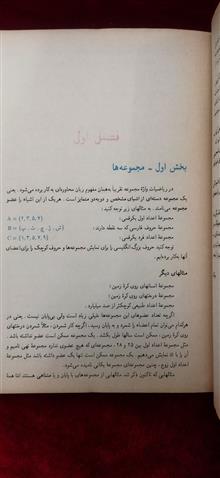 فصل اول
بخش اول ـ مجموعه‌ها
در ریاضیات واژهٔ مجموعه تقریباً به همان مفهوم زبان محاوره‌ای به کار برده می‌شود. یعنی
یک مجموعه دسته‌ای از اشیای مشخص و دوبه‌دو متمایز است. هر یک از این اشیاء را عضو
مجموعه می‌نامند. به مثالهای زیر توجه کنید:
مجموعهٔ اعداد اول یکرقمی: A = {۲,۳,۵,۷}
مجموعهٔ حروف فارسی که سه نقطه دارند: B = {پ , ث , چ , ژ , ش}
مجموعهٔ اعداد فرد یکرقمی: C = {۱,۳,۵,۷,۹}
توجه کنید حروف بزرگ انگلیسی را برای نمایش مجموعه‌ها و حروف کوچک را برای اعضای
آنها بکار برده‌ایم.
مثالهای دیگر
مجموعهٔ انسانهای روی کرهٔ زمین؛
مجموعهٔ درختهای روی کرهٔ زمین؛
مجموعهٔ اعداد طبیعی کوچکتر از صد میلیارد.
اگرچه تعداد عضوهای این مجموعه‌ها خیلی زیاد است ولی بی‌پایان نیست. یعنی در
هر کدام می‌توان تمام اعضاء را شمرد و به پایان رسید. اگرچه کار شمردن، مثلاً شمردن درختهای
روی کرهٔ زمین، ممکن است سالها طول بکشد. یک مجموعه ممکن است عضو نداشته باشد.
مثل مجموعهٔ اعداد اول بین ۲۵ و ۲۸. مجموعه‌ای که هیچ عضوی ندارد مجموعهٔ تهی نامیم و
آن را با ∅ نمایش می‌دهیم. یک مجموعه ممکن است تنها یک عضو داشته باشد مثل مجموعهٔ
اعداد اول زوج. چنین مجموعه‌ای مجموعهٔ یکانی نامیده می‌شود.
مثالهایی که تاکنون ذکر شد مثالهایی از مجموعه‌های با پایان و یا متناهی هستند اما ما